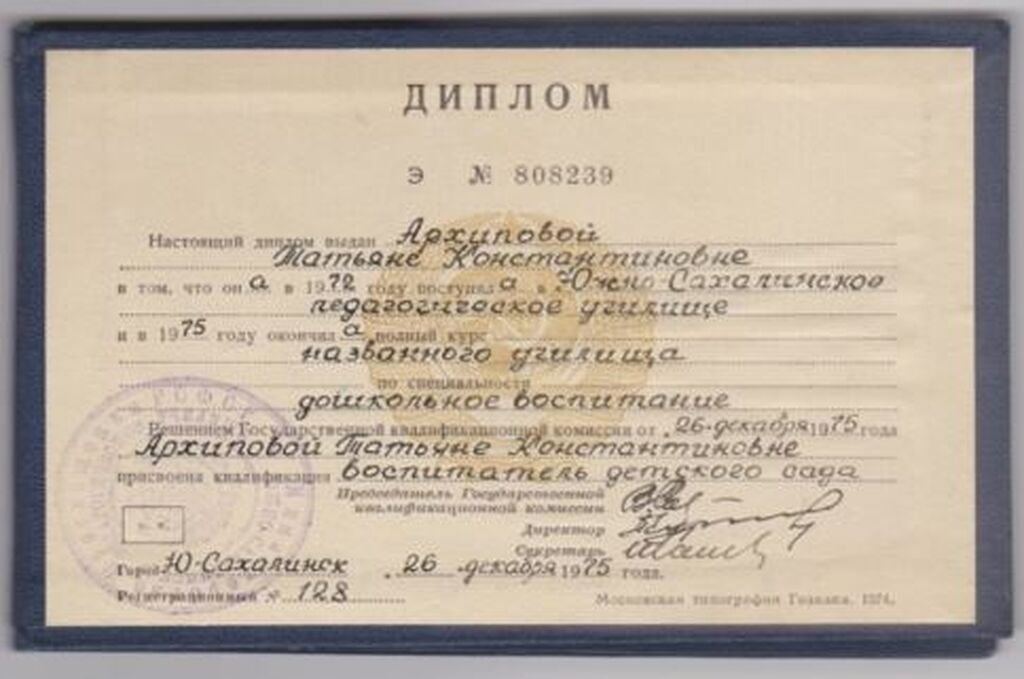 ДИПЛОМ
Э № 808239
Настоящий диплом выдан Архиповой
Татьяне Константиновне
в том, что он а в 1972 году поступил а в Южно-Сахалинское
педагогическое училище
и в 1975 году окончил а полный курс
названного училища
по специальности
дошкольное воспитание
Решением Государственной квалификационной комиссии от 26 декабря 1975 года
Архиповой Татьяне Константиновне
присвоена квалификация воспитатель детского сада
Председатель Государственной
квалификационной комиссии
Директор
Секретарь
Город Ю-Сахалинск 26 декабря 1975 года.
Регистрационный № 128
Московская типография Гознака. 1974.